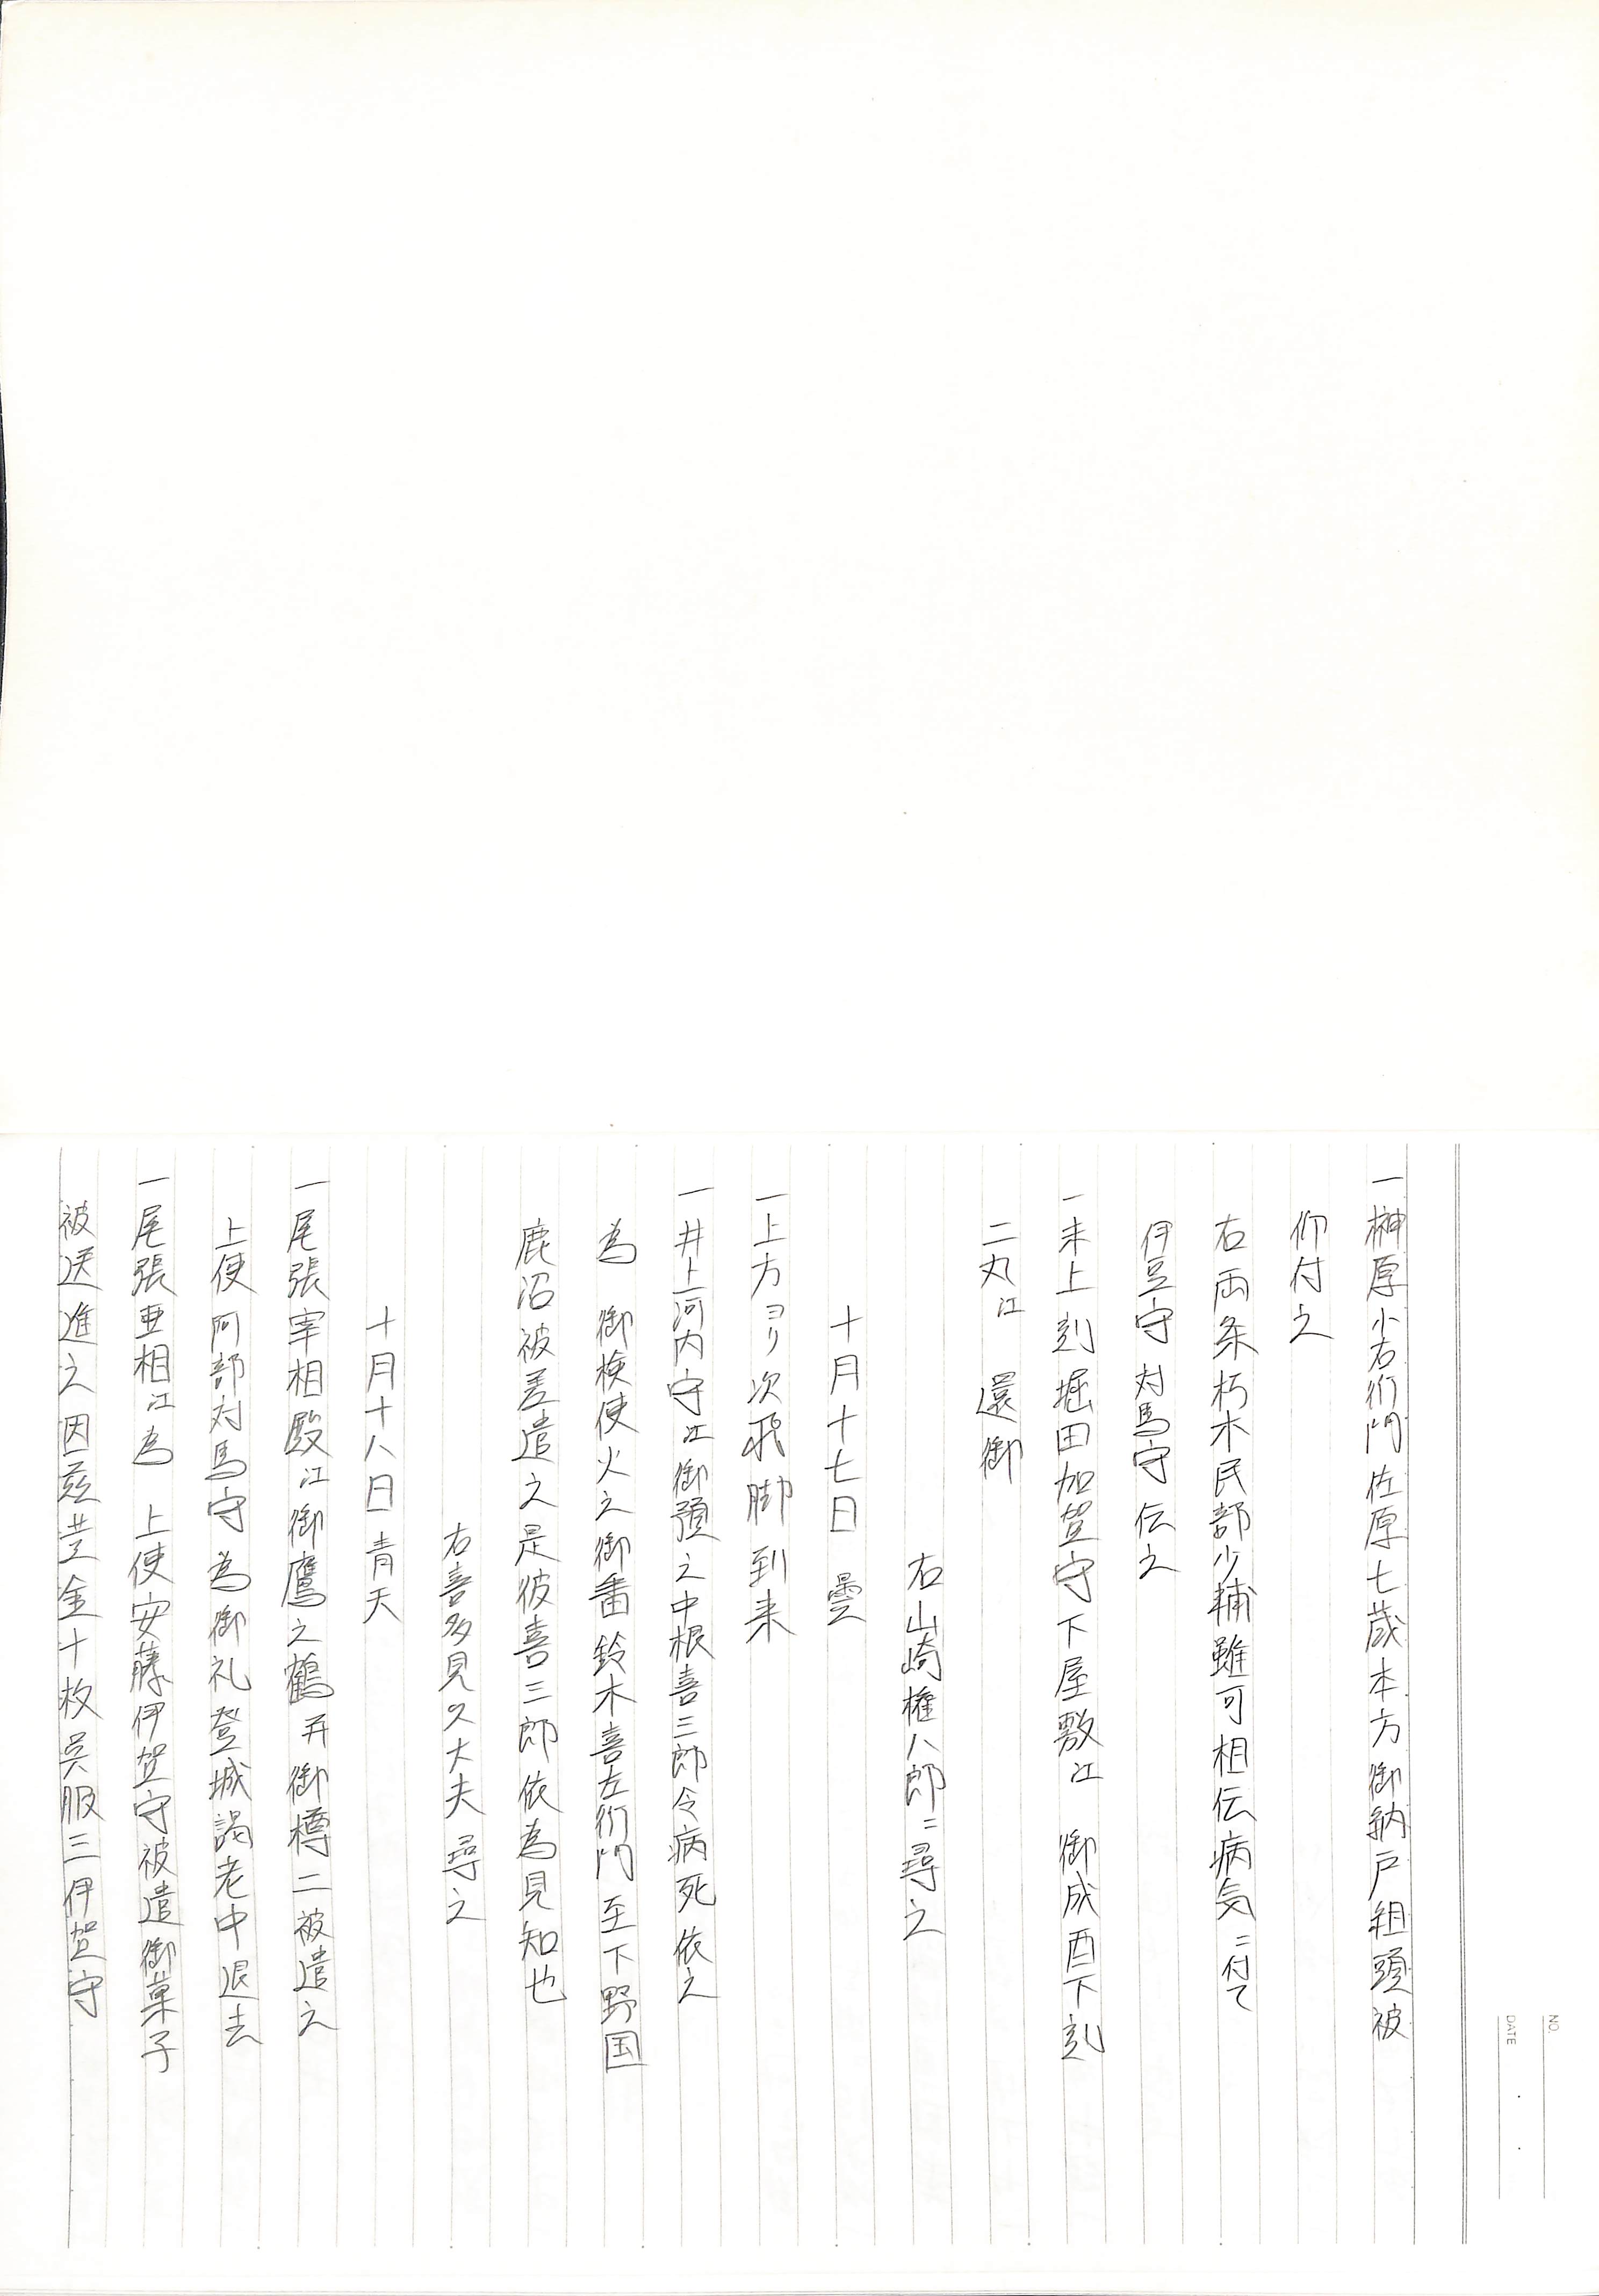 一榊原小右衛門佐原七歳本方御納戸組頭被
仰付之
右両条朽木民部少輔雖可相伝病気ニ付て
伊豆守対馬守伝之
一未上刻堀田加賀守下屋敷江 御成酉下刻
二丸江 還御
右山崎権八郎ニ尋之
十月十七日 曇
一上方ヨリ次飛脚到来
一井上河内守江御預之中根喜三郎令病死依之
為 御検使火之御番鈴木喜左衛門至下野国
鹿沼被差遣之是彼喜三郎依為見知也
右喜多見久大夫尋之
十月十八日青天
一尾張宰相殿江御鷹之鶴并御樽二被遣之
上使阿部対馬守為御礼登城謁老中退去
一尾張亜相江為 上使安藤伊賀守被遣御菓子
被送進之因茲芷金十枚呉服三伊賀守
NO.
DATE